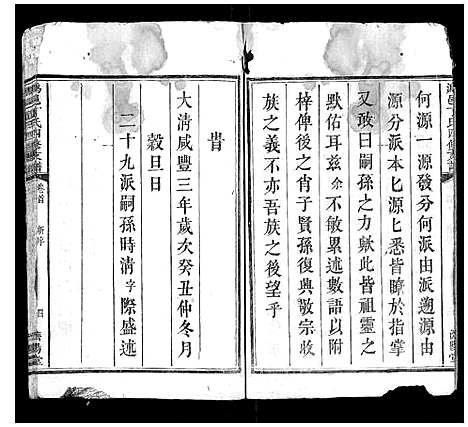 何源一源發分何派由派遡源由
源分派本匕源匕悉皆瞭於指掌
又敢曰嗣孫之力歟此皆祖靈之
默佑耳茲余不敏累述數語以附
梓俾後之肖子賢孫復興敬宗收
族之義不亦吾族之後望乎
旹
大清咸豐三年歲次癸丑仲冬月
穀旦日
二十九派嗣孫時清字際盛述
卷首
新序
四
濟陽堂